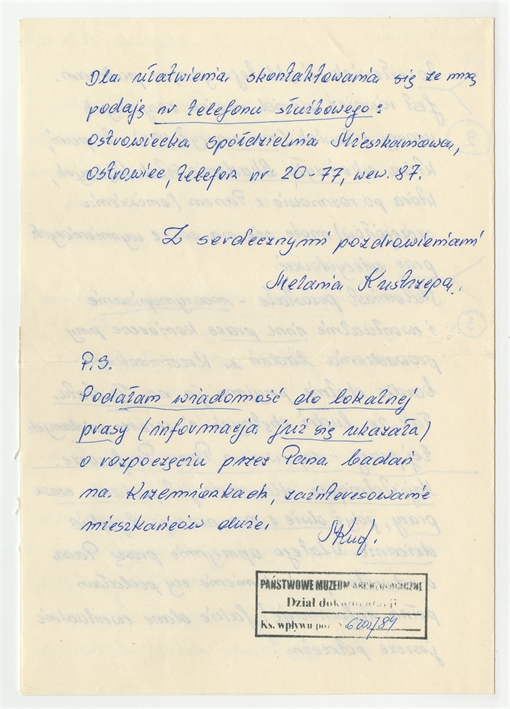 Dla ułatwienia skontaktowania się ze mną
podaję nr telefonu służbowego:
Ostrowiecka Spółdzielnia Mieszkaniowa,
Ostrowiec, telefon nr 20-77, wew. 87.
Z serdecznymi pozdrowieniami
Melania Kustrzepa.
P.S.
Podałam wiadomość do lokalnej
prasy (informacja już się ukazała)
o rozpoczęciu przez Pana badań
na Krzemionkach, zainteresowanie
mieszkańców duże.
MKuś.
PAŃSTWOWE MUZEUM ARCHEOLOGICZNE
Dział dokumentacji
Ks. wpływu poz. 620/84